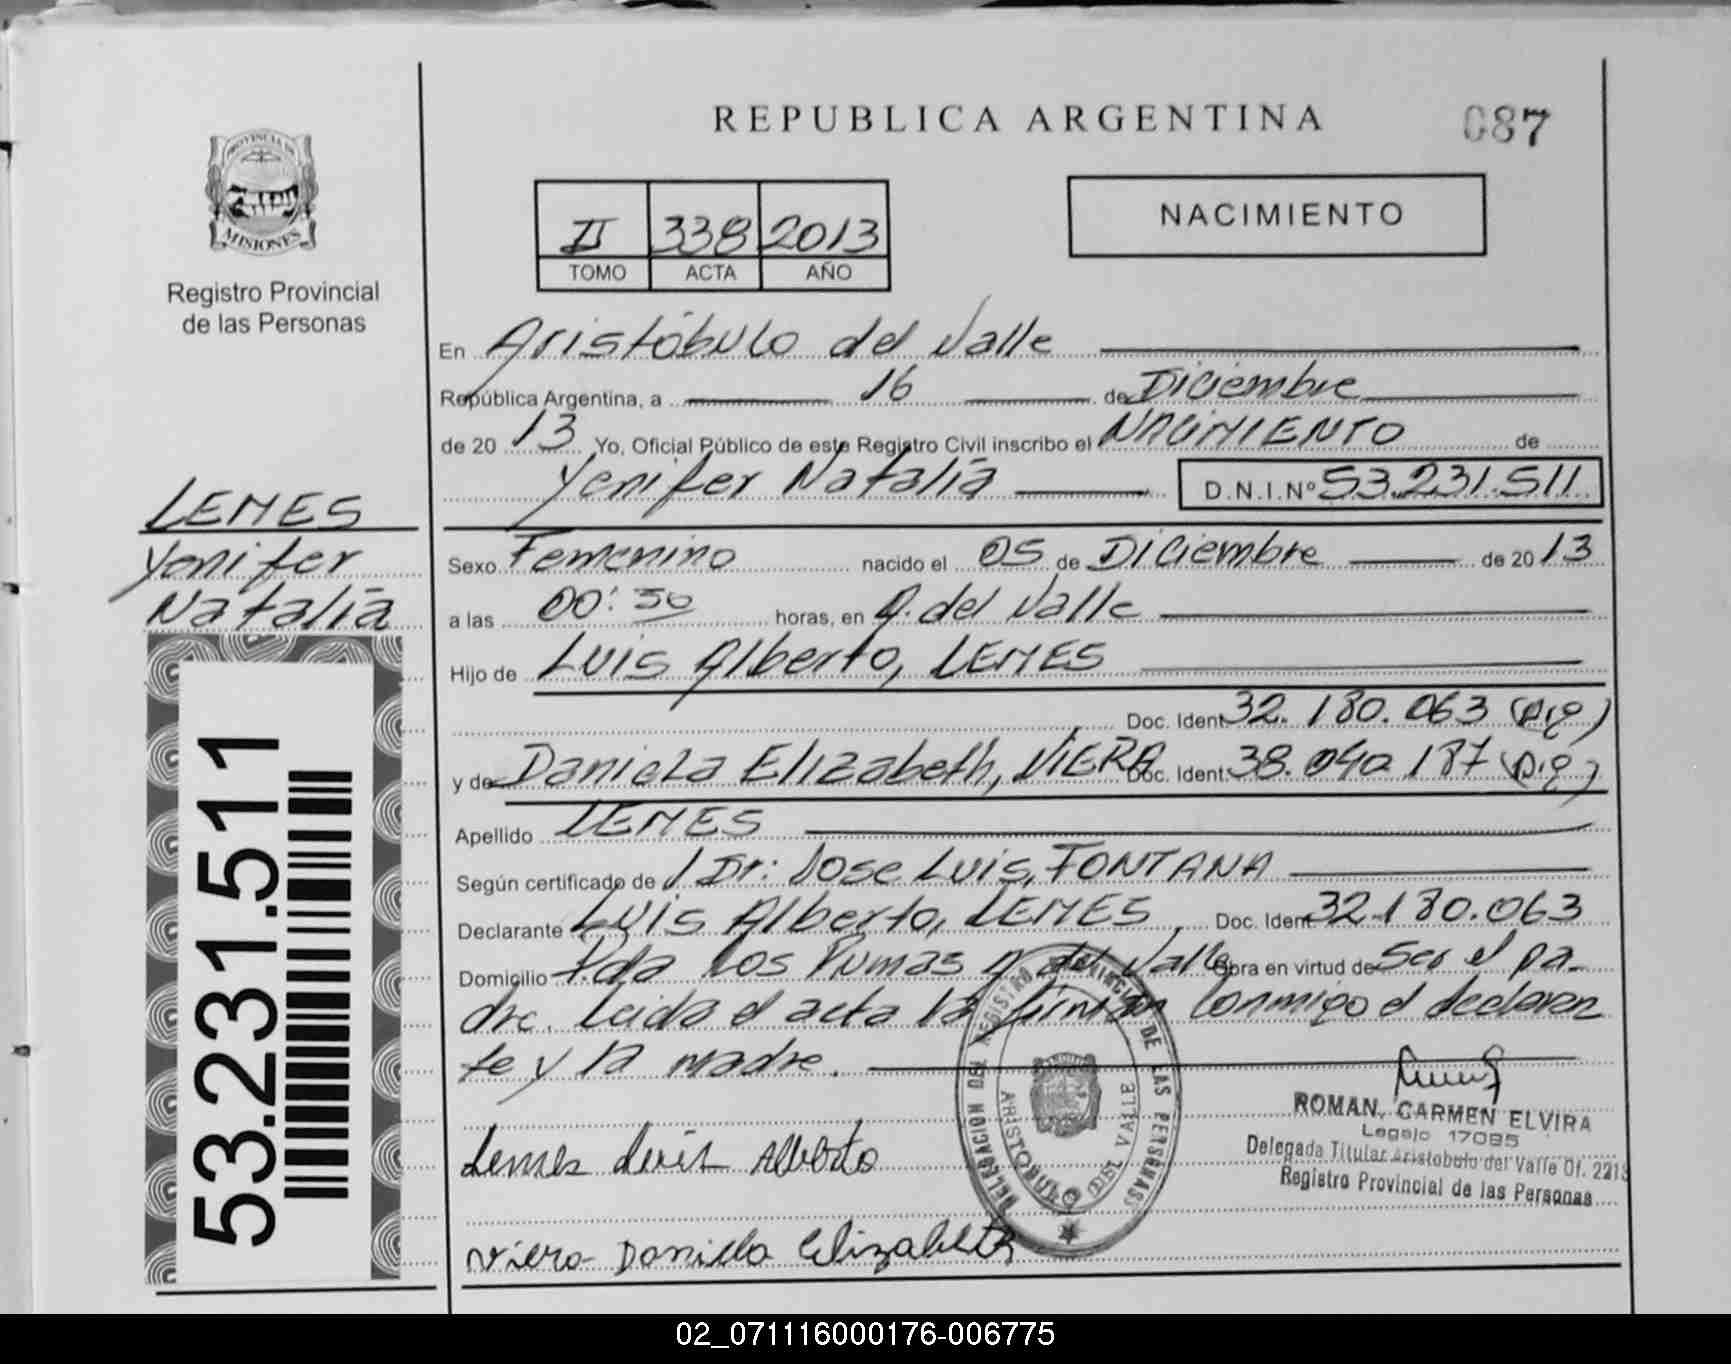 REPUBLICA ARGENTINA
087
PROVINCIA DE
MISIONES
Registro Provincial
de las Personas
II 338 2013
TOMO ACTA AÑO
NACIMIENTO
En Aristóbulo del Valle
República Argentina, a 16 de Diciembre
de 20 13 Yo, Oficial Público de este Registro Civil inscribo el NACIMIENTO de
Yenifer Natalia D.N.I.Nº 53.231.511
LEMES
Yenifer
Natalia
53.231.511
Sexo Femenino nacido el 05 de Diciembre de 20 13
a las 00:30 horas, en A. del Valle
Hijo de Luis Alberto, LEMES
Doc. Ident. 32.180.063
y de Daniela Elizabeth, VIERA Doc. Ident. 38.040.187
Apellido LEMES
Según certificado de Dr: Jose Luis, FONTANA
Declarante Luis Alberto, LEMES, Doc. Ident. 32.180.063
Domicilio Pda Los Pumas A. del Valle Obra en virtud de Ser el pa-
dre. Leida el acta la firman conmigo el declaran
te y la madre.
Lemes Luis Alberto
Viera Daniela Elizabeth
DELEGACION DEL REGISTRO PROVINCIAL DE LAS PERSONAS
ARISTOBULO DEL VALLE
ROMAN, CARMEN ELVIRA
Legajo 17095
Delegada Titular Aristobulo del Valle Of. 2213
Registro Provincial de las Personas
02_071116000176-006775